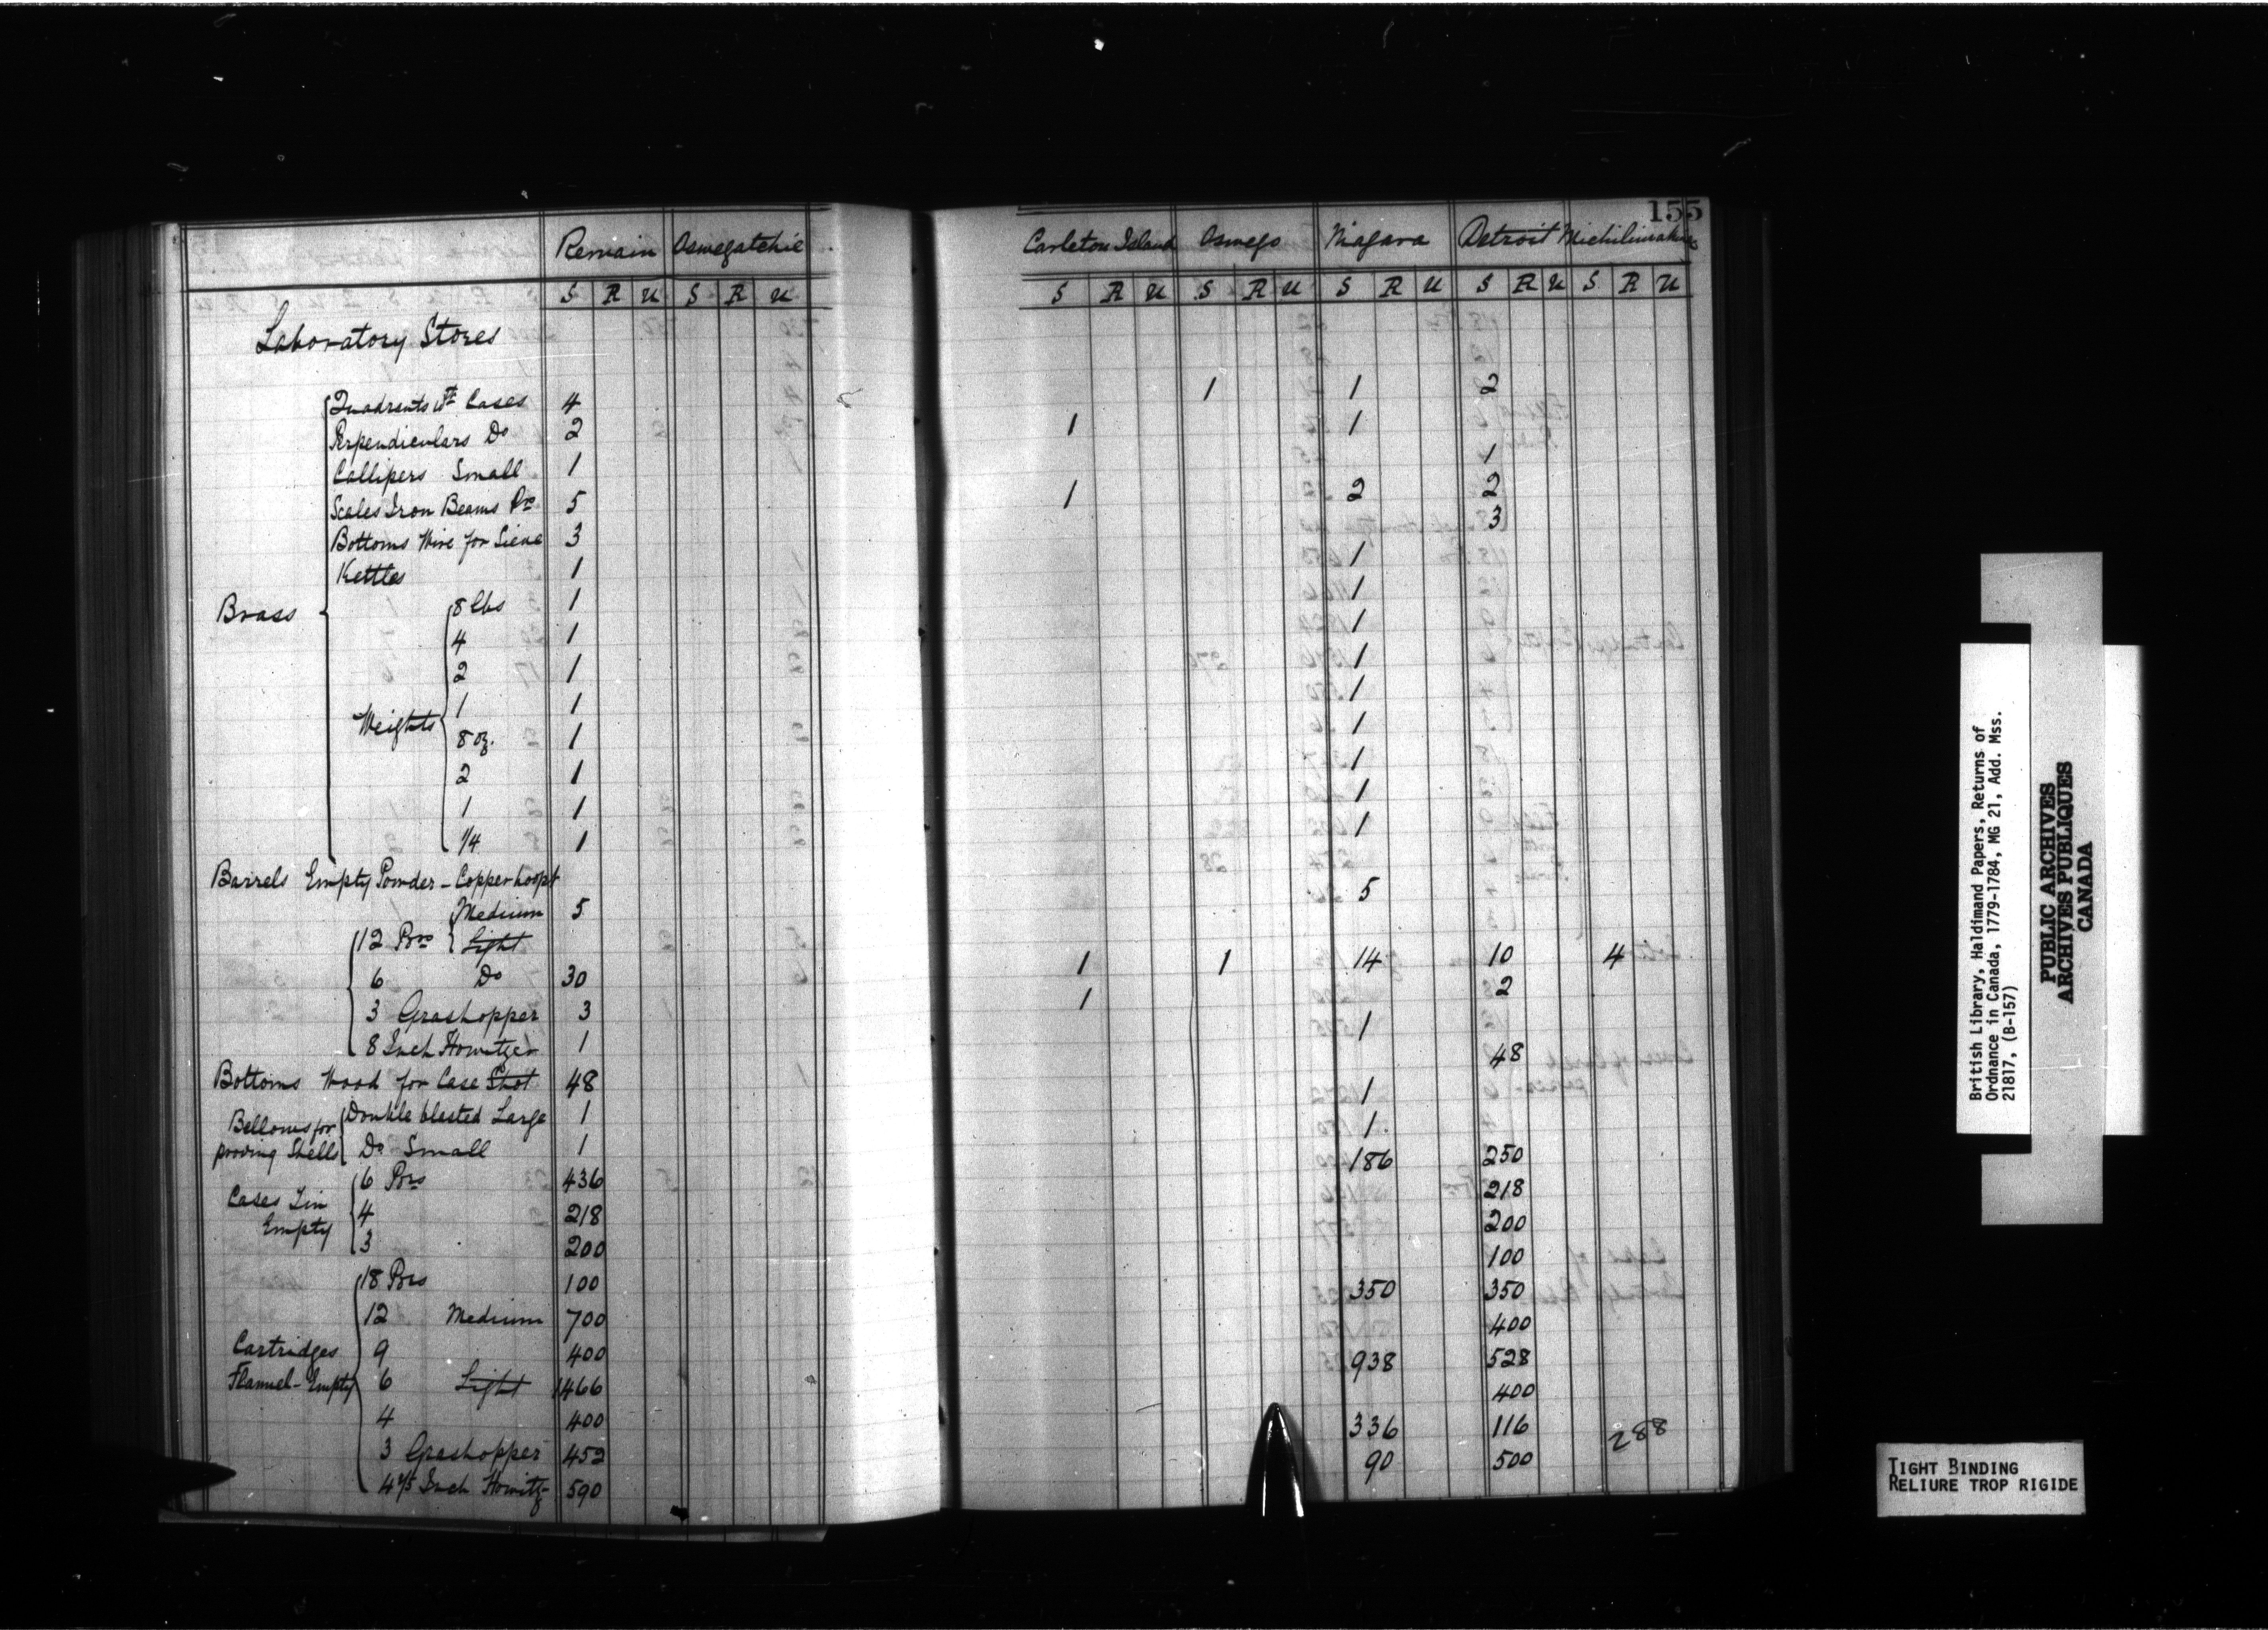 155
Remain Oswegatchie Carleton Island Oswego Niagara Detroit Michilimakinac
S R U S R U S R U S R U S R U S R U S R U
Laboratory Stores
Brass
Quadrants wt Cases 4 1 1 2
Perpendiculars Do 2 1 1
Callipers Small 1 1
Scales Iron Beams Prs 5 1 2 2
Bottoms Wire for Sieve 3 3
Kettles 1 1
Weights
8 lbs 1 1
4 1 1
2 1 1
1 1 1
8 oz. 1 1
2 1 1
1 1 1
1/4 1 1
Barrels Empty Powder - Copper hoopt
12 Prs Medium 5 5
Light
6 Do 30 1 1 14 10 4
3 Grashopper 3 1 2
8 Inch Howitzer 1 1
Bottoms Wood for Case Shot 48 48
Bellows for prooving Shells
Double blasted Large 1 1
Do Small 1 1
Cases Tin Empty
6 Prs 436 186 250
4 218 218
3 200 200
Cartridges Flannel - Empty
18 Prs 100 100
12 Medium 700 350 350
9 400 400
6 Light 1466 938 528
4 400 400
3 Grashopper 452 336 116
4 2/5 Inch Howitz 590 90 500
288
British Library, Haldimand Papers, Returns of
Ordnance in Canada, 1779-1784, MG 21, Add. Mss.
21817, (B-157)
PUBLIC ARCHIVES
ARCHIVES PUBLIQUES
CANADA
TIGHT BINDING
RELIURE TROP RIGIDE